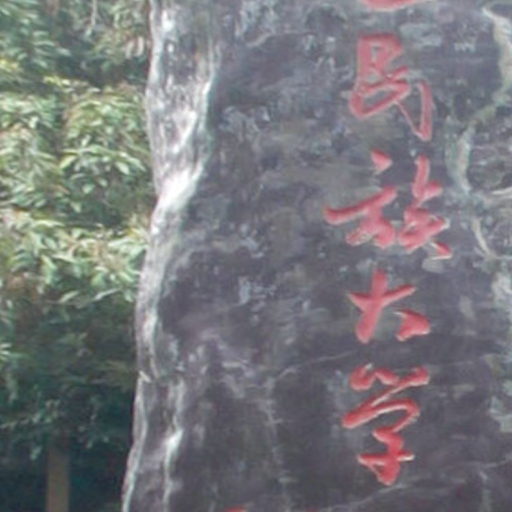 民族大学